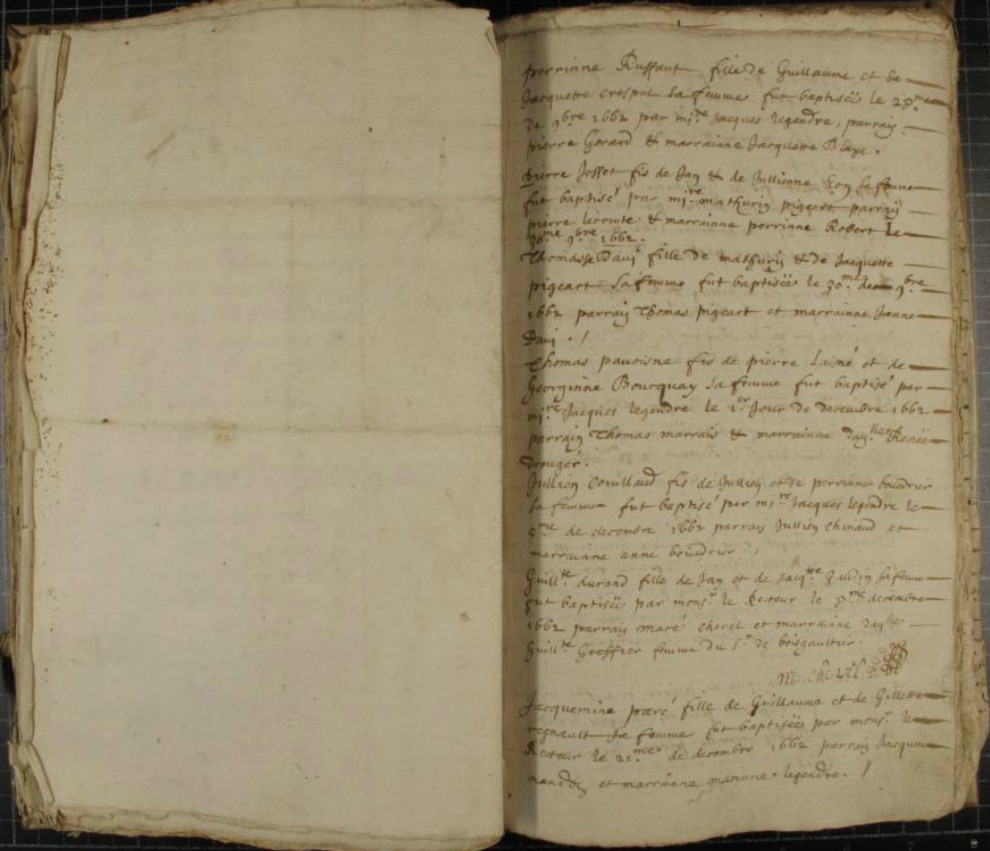 perrinne Ruffaut fille de Guillaume et de
Jacquette crespel sa femme fut baptiseë le 28me
de 9bre 1662 par mire Jacques legendre, parrain
pierre Gerard & marrainne Jacquette Blaye.
Pierre Josset fis de Jan & de Jullienne sa femme
fut baptisé par mire mathurin pigeart parrain
pierre leconte & marrainne perrinne Robert Le
30me 9bre 1662.
Thomasse Davi fille de mathurin & de Jacquette
pigeart sa femme fut baptiseë le 30me de 9bre
1662 parrain Thomas pigeart et marrainne Janne
Davi . /
Thomas pavoisne fis de pierre Laisné et de
Georginne Boucquay sa femme fut baptisé par
mire Jacques legendre le 1er Jour de decembre 1662
parrain Thomas marrais & marrainne daylle Reneë
drouger.
Jullien Couillaud fis de Jullien et de perrine boudrier
sa femme fut baptisé par mire Jacques legendre le
5me de decembre 1662 parrain Jullien chinaud et
marrainne anne boudrier . /
Guillte durand fille de Jan et de Jacqtte Gaudin sa femme
fut baptiseë par monsr le Recteur le 8me decembre
1662 parrain macé cherel et marrainne daylle
Guillte Greffier femme du Sr de boisgaultier.
Jacquemine paré fille de Guillaume et de Gillette
regnault sa femme fut baptiseë par monsr le
Recteur le 21me de decembre 1662 parrain Jacques
et marrainne legendre. /